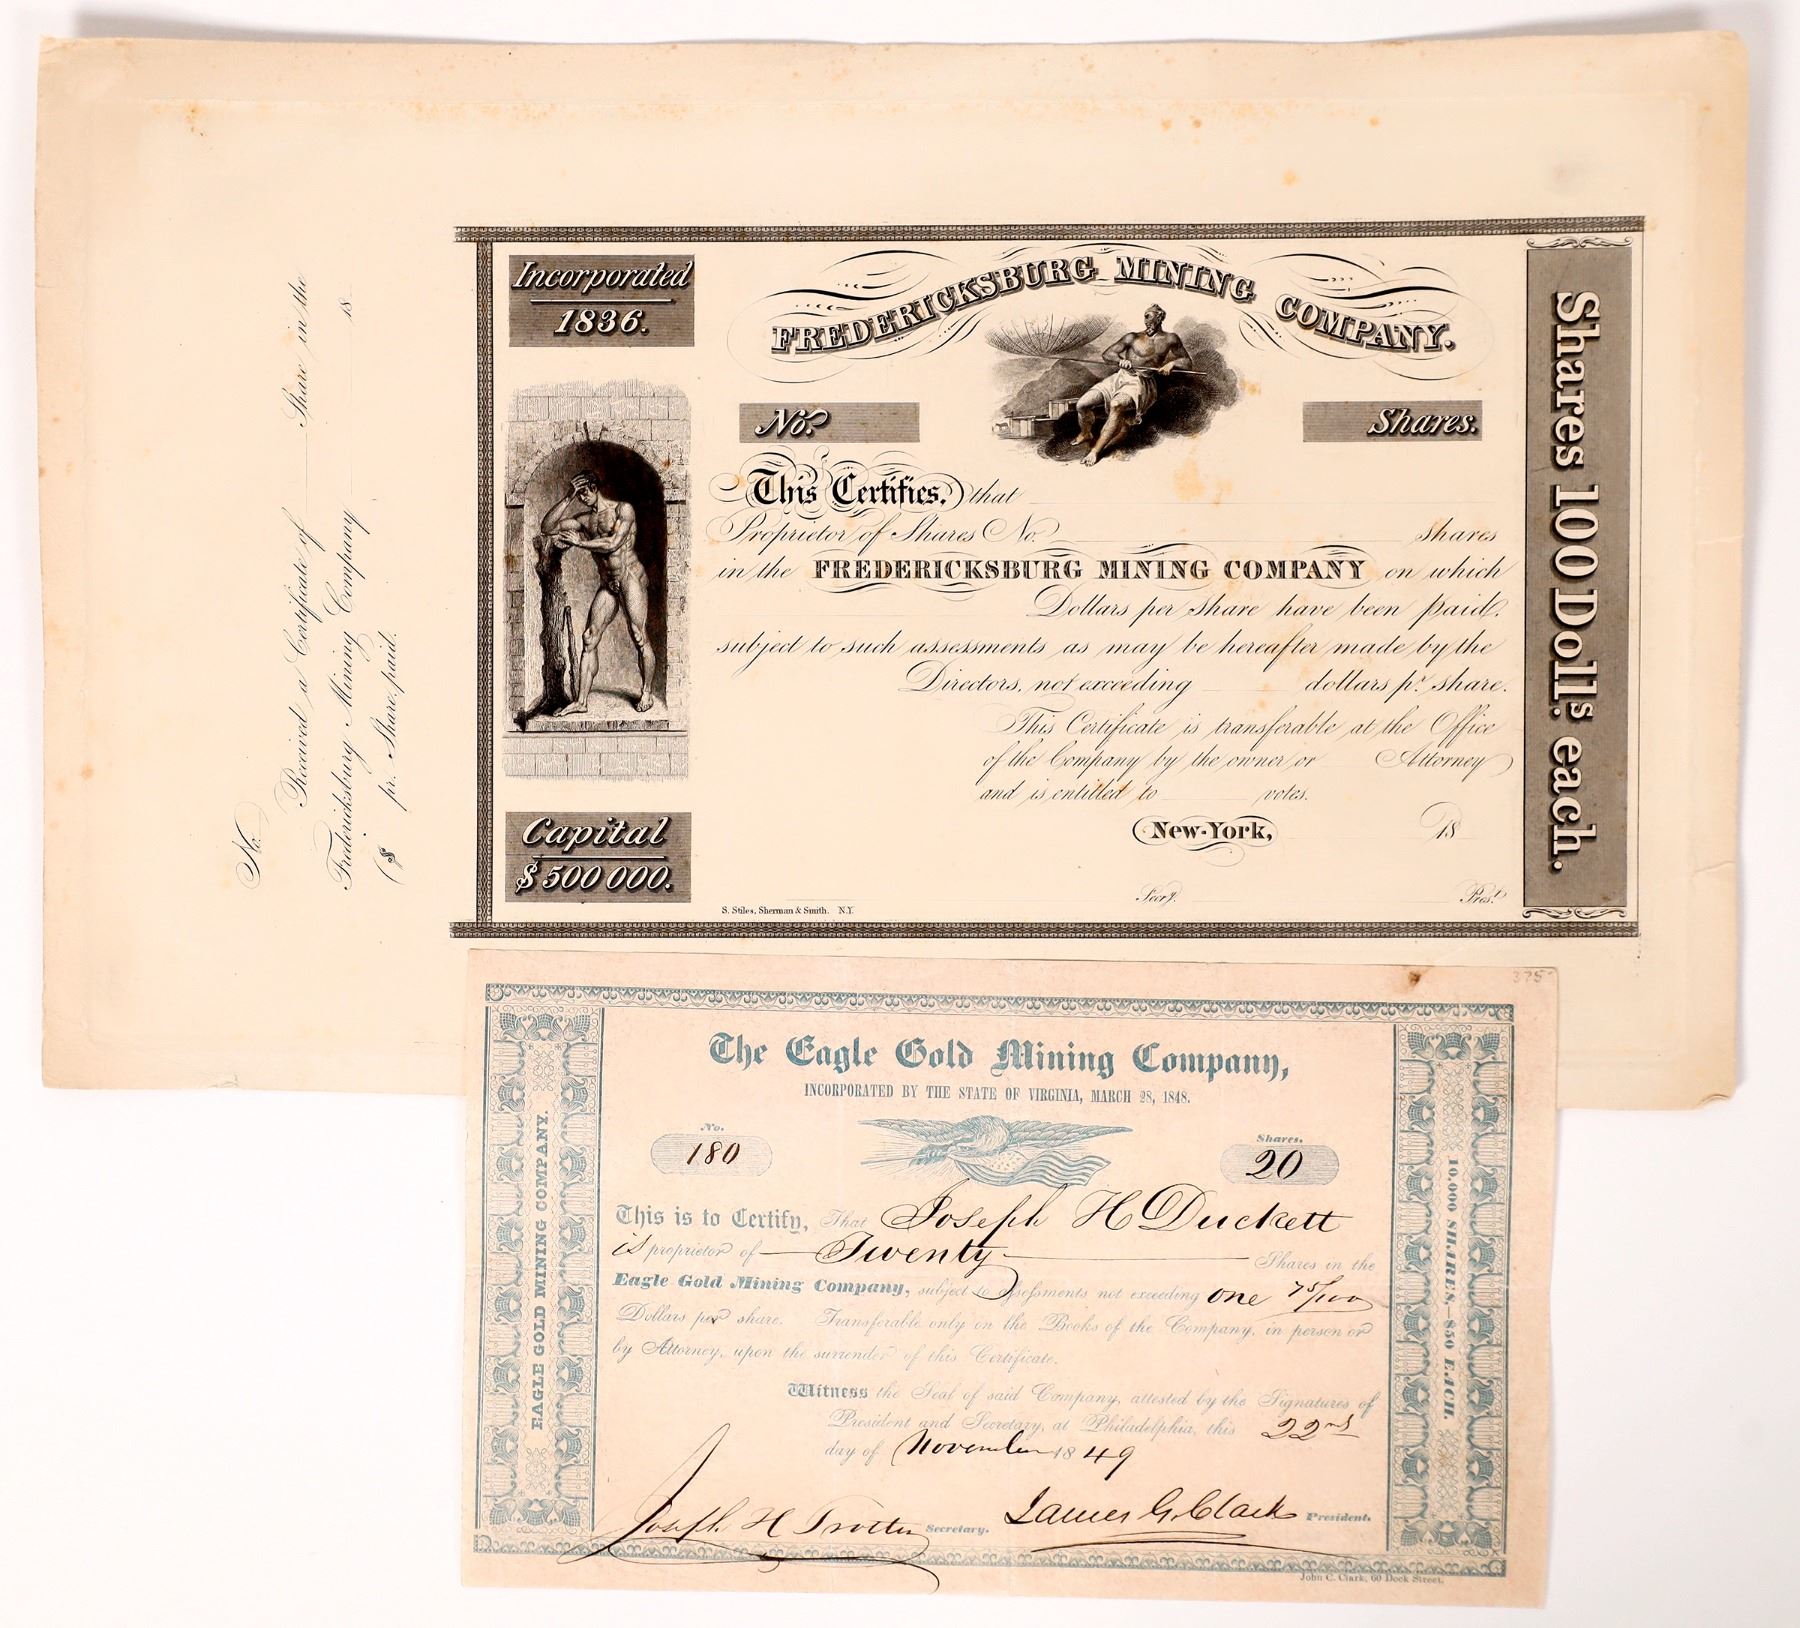 No.
Received a Certificate of Share in the
Fredericksburg Mining Company 18
($ pr. Share, paid.
Incorporated
1836.
FREDERICKSBURG MINING COMPANY.
No.
Shares.
This Certifies, that
Proprietor of Shares No. shares
in the FREDERICKSBURG MINING COMPANY on which
Dollars per share have been paid.
subject to such assessments as may be hereafter made by the
Directors, not exceeding dollars pr. share.
This Certificate is transferable at the Office
of the Company by the owner or Attorney
and is entitled to votes.
New-York, 18
Capital
$500 000.
Secry. Prest.
S. Stiles, Sherman & Smith. N.Y.
Shares 100 Dolls. each.
375
The Eagle Gold Mining Company,
INCORPORATED BY THE STATE OF VIRGINIA, MARCH 28, 1848.
No.
180
Shares.
20
This is to Certify, That Joseph H Duckett
is proprietor of Twenty Shares in the
Eagle Gold Mining Company, subject to assessments not exceeding one 75/100
Dollars per share. Transferable only on the Books of the Company, in person or
by Attorney, upon the surrender of this Certificate.
Witness the Seal of said Company, attested by the Signatures of
President and Secretary, at Philadelphia, this 22nd
day of November 1849
Joseph H Trotter Secretary. James G. Clark President.
EAGLE GOLD MINING COMPANY.
10,000 SHARES, $50 EACH.
John C. Clark, 60 Dock Street.